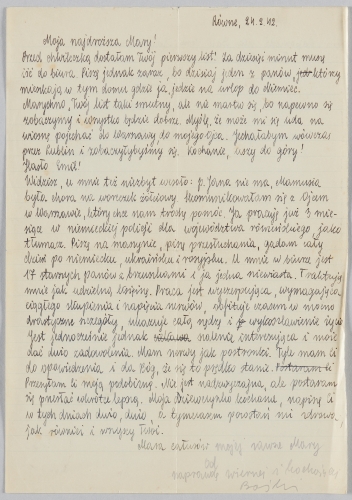 Równe, 24.2.42.
Moja najdroższa Mary!
Przed chwileczką dostałam Twój pierwszy list! Za dziesięć minut muszę
iść do biura. Piszę jednak zaraz, bo dzisiaj jeden z panów, który
mieszkają w tym domu gdzie ja, jedzie na urlop do Niemiec.
Marychno, Twój list taki smutny, ale nie martw się, bo napewno się
zobaczymy i wszystko będzie dobrze. Myślę, że może mi się uda na
wiosnę pojechać do Warszawy do mojego Ojca. Jechałabym wówczas
przez Lublin i zobaczyłybyśmy się. Kochanie, uszy do góry!
Hasło Emil!
Widzisz, u mnie też niezbyt wesoło: p. Jana nie ma, Mamusia
była chora na woreczek żółciowy. Skomunikowałam się z Ojcem
w Warszawie, który chce nam trochę pomóc. Ja pracuję już 3 mie-
siące w niemieckiej policji dla województwa rówieńskiego jako
tłumacz. Piszę na maszynie, piszę przesłuchania, gadam cały
dzień po niemiecku, ukraińsku i rosyjsku. U mnie w biurze jest
17 starszych panów z brzuchami i ja jedna niewiasta. Traktują
mnie jak udzielną księżnę. Praca jest wyczerpująca, wymagająca
ciągłego skupienia i napięcia nerwów, obfituje czasem w mocno
drastyczne szczegóły, ukazuje całą nędzę i wykolawienie życia
Jest jednocześnie jednak szalenie interesująca i może
dać dużo zadowolenia. Mam nerwy jak postronki. Tyle mam Ci
do opowiedzenia i da Bóg, że się to prędko stanie.
Przesyłam Ci moją podobiznę. Nie jest nadzwyczajna, ale postaram
się przesłać wkrótce lepszą. Moja Dziewczynko kochana, napiszę Ci
w tych dniach dużo, dużo, a tymczasem pozostań mi zdrowa,
jak również i wszyscy Twoi.
Masa całusów mojej Mary
od
naprawdę wiernej i kochającej